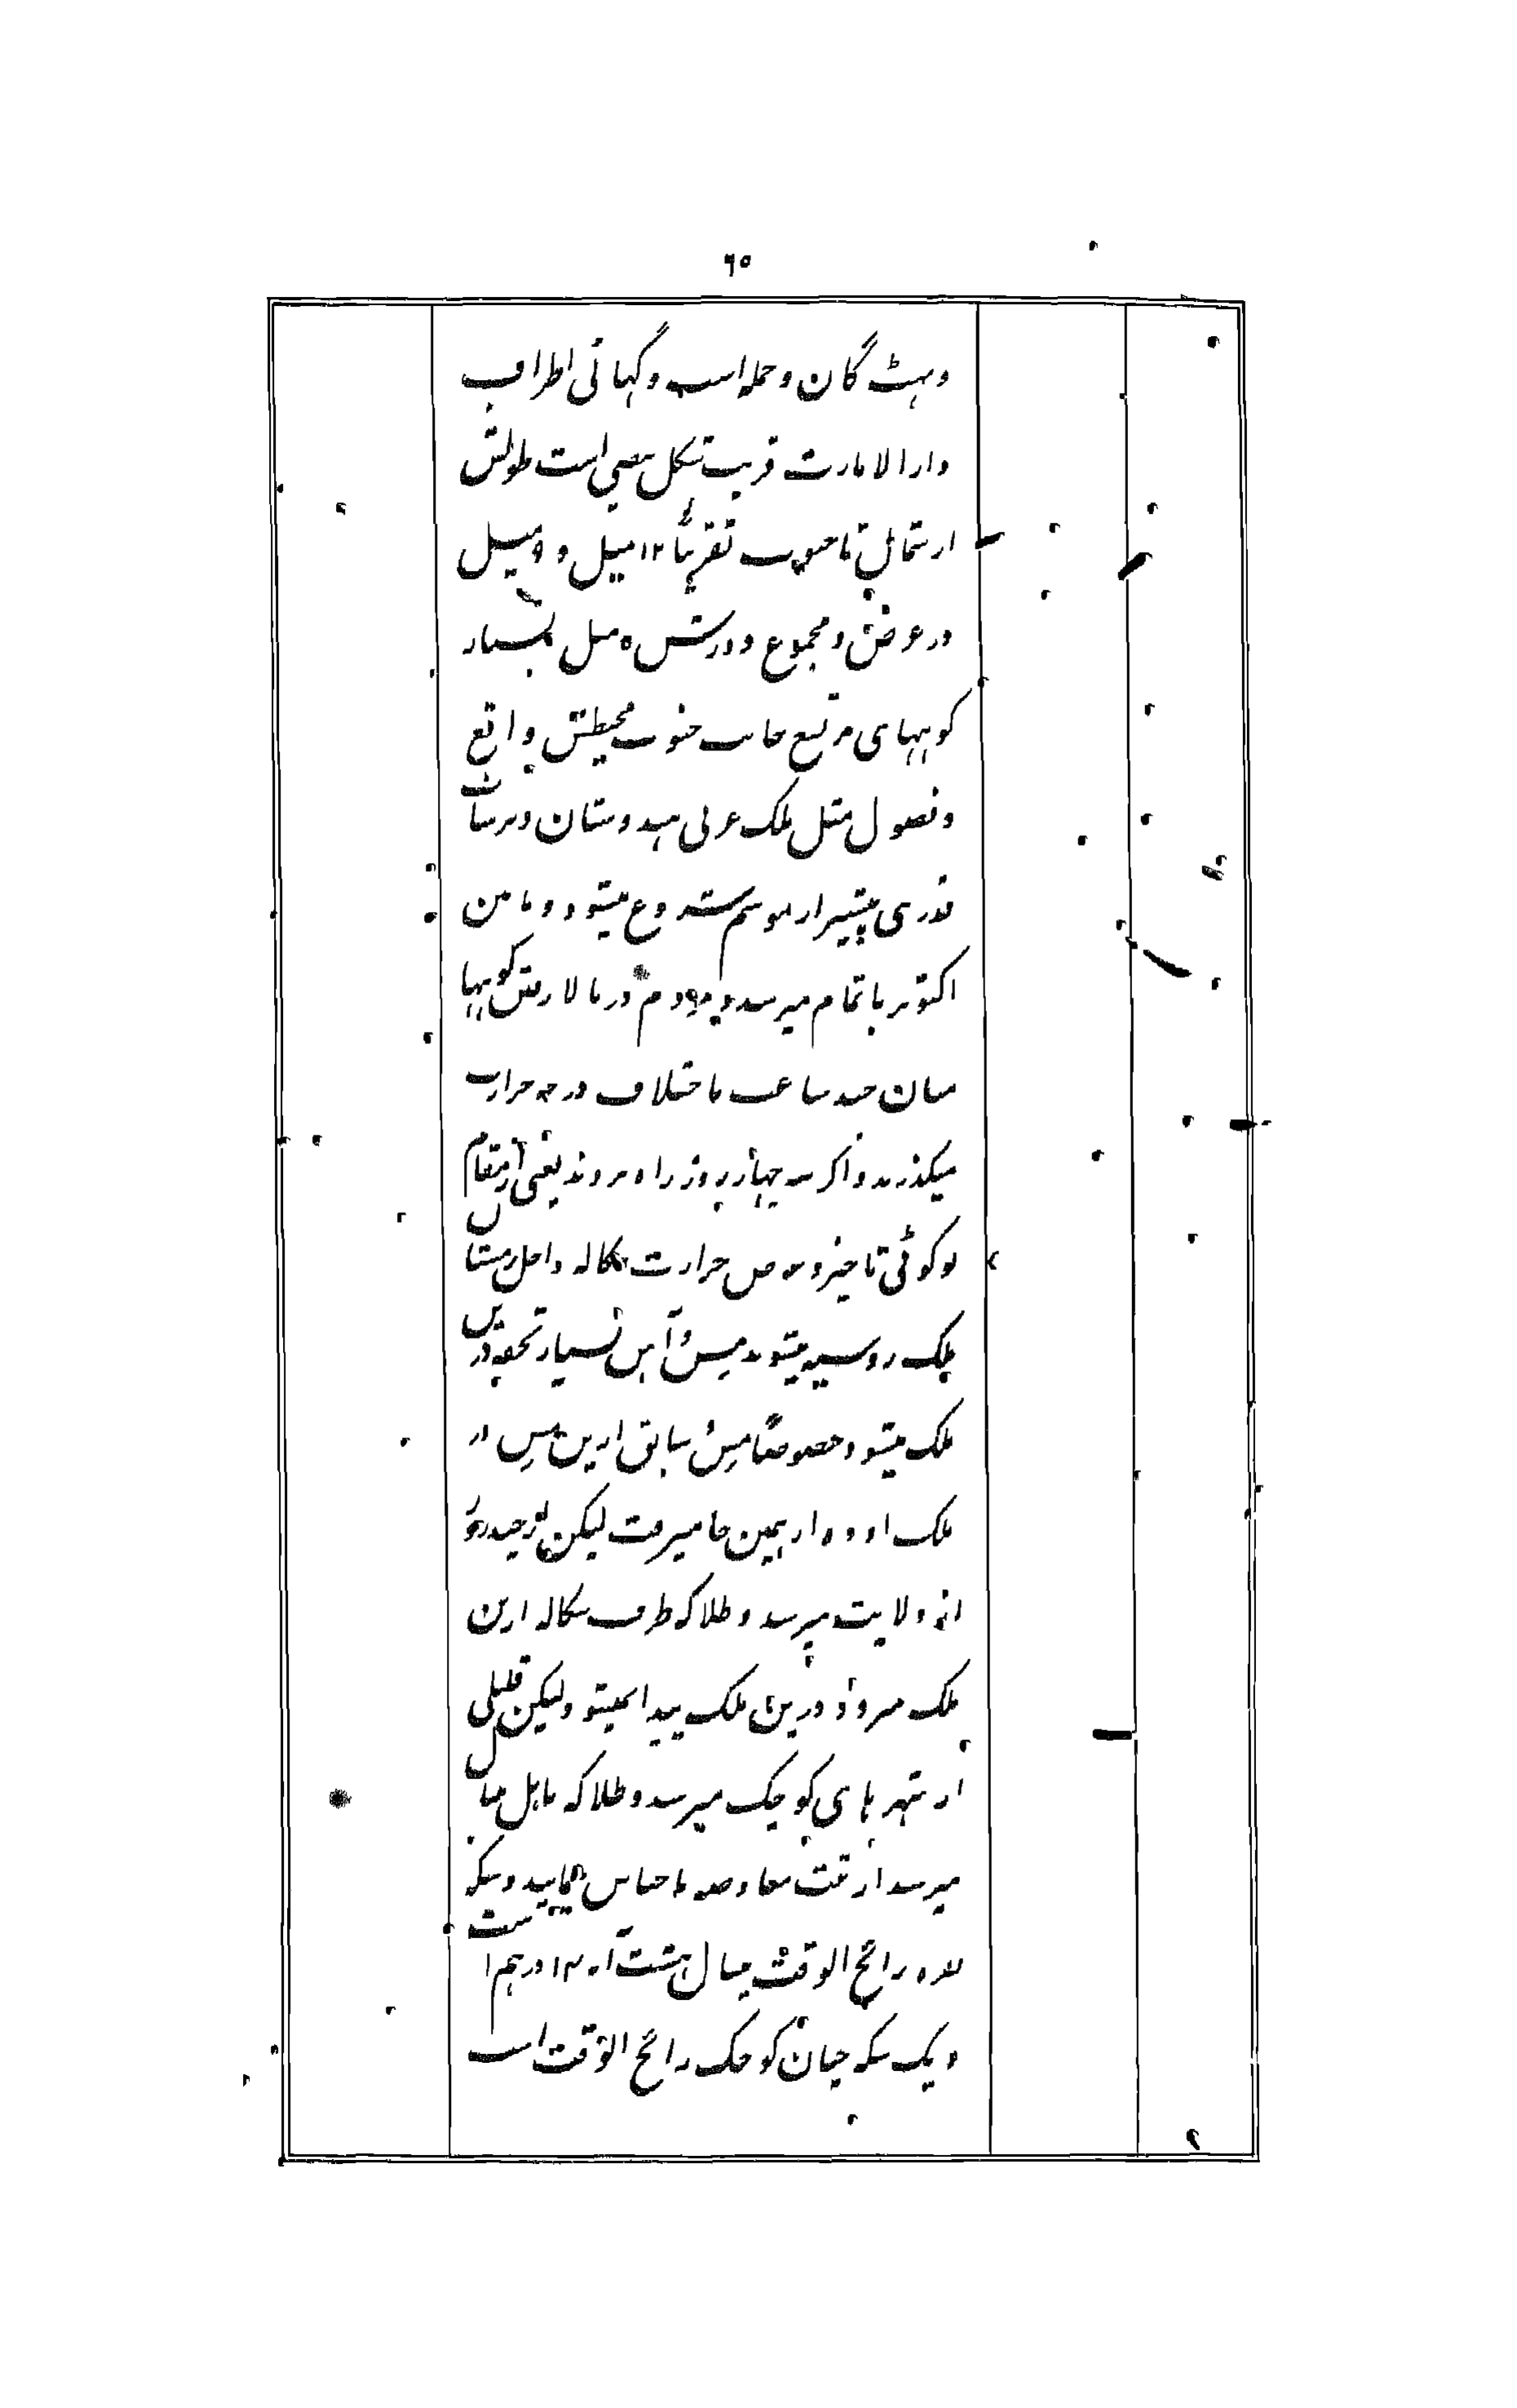 ٦٥
وہٹ گان و حمله است و گهائی اطراف
دارالامارت قریب شکل بیضی است طولش
از شمال تا جنوب تقریباً ١٢ میل و ٩ میل
در عرض و مجموع دورش ٥ میل بسیار
کوههای مرتفع جانب جنوب محیطش واقع
و فصول مثل ملک غربی هندوستان و برسات
قدری پیشتر از موسم شروع میشود و ما من
اکتوبر باتمام میرسد و مردم در بالا رفتن کوهها
میان چند ساعت باختلاف درجه حرارت
میگذرند و اگر سه چهار روز راه بروند یعنی از مقام
نوکوٹی تا خیزو حرارت بنگاله داخل زمستان
ملک روسیه میشوند مس و آهن بسیار تحفه درین
ملک میشود خصوصاً مس سابق ازین مس در
ملک اوده از همین جا میرفت لیکن از چند روز
از ولایت میرسد و طلا که طرف بنگاله ازین
ملک میرود درین ملک پیدا نمیشود لیکن قلیلی
از شهرهای کوچک میرسد و طلا که
میرسد از تبت معاوضه با اجناس نمایند و سکه
رائج الوقت نیپال هشت آنه ١٢ درهم است
و یک سکه چنان کوچک رائج الوقت است